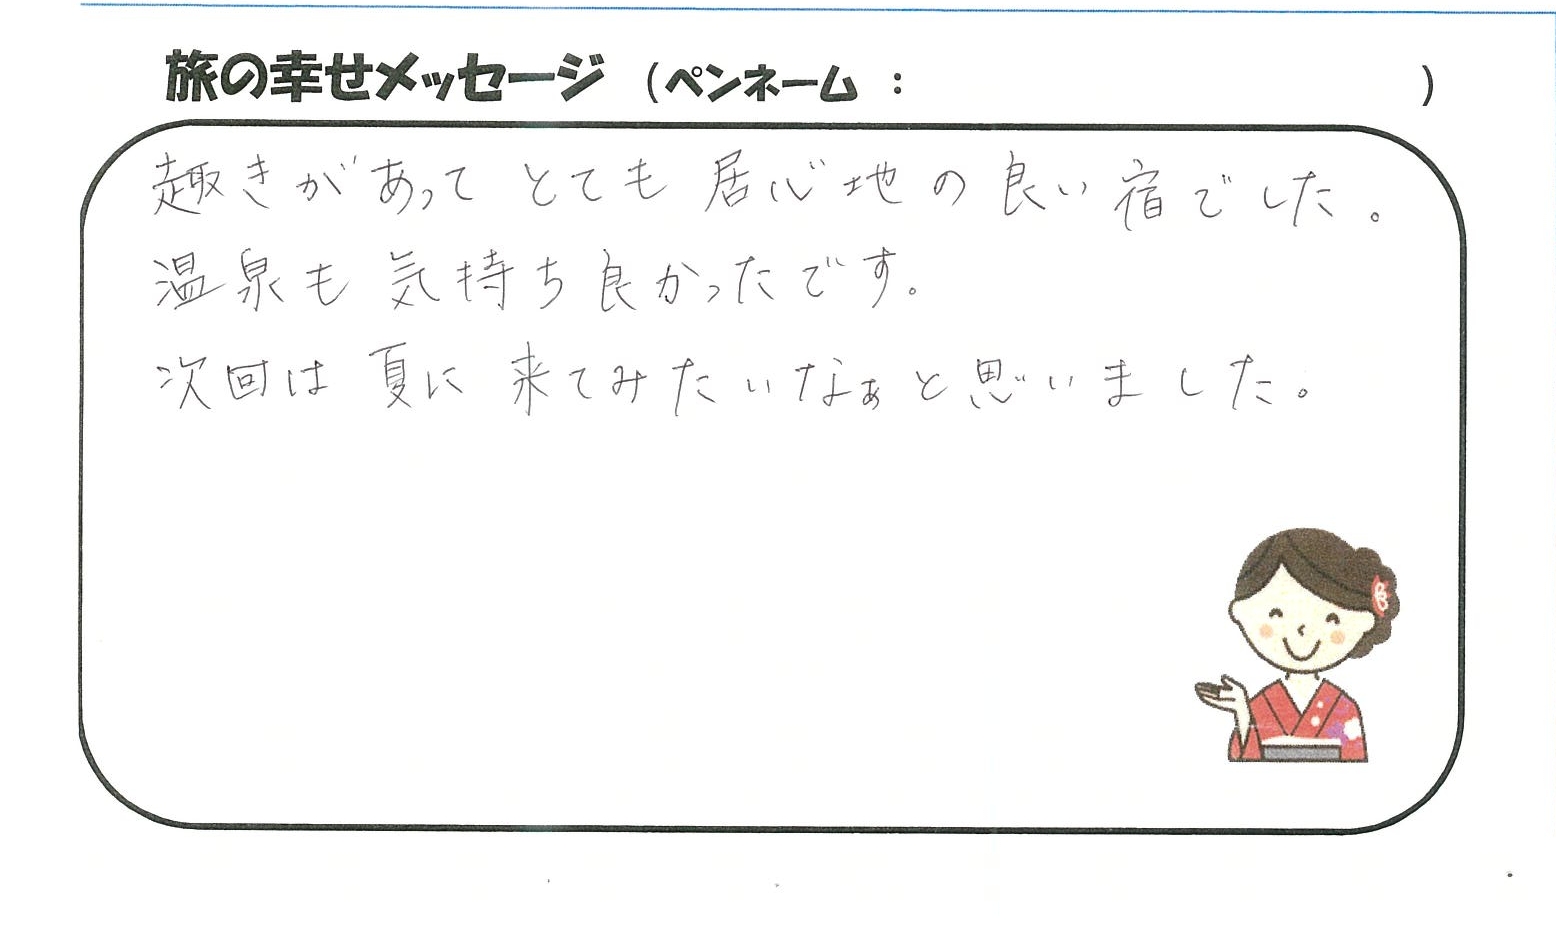 旅の幸せメッセージ (ペンネーム : )
趣きがあってとても居心地の良い宿でした。
温泉も気持ち良かったです。
次回は夏に来てみたいなぁと思いました。